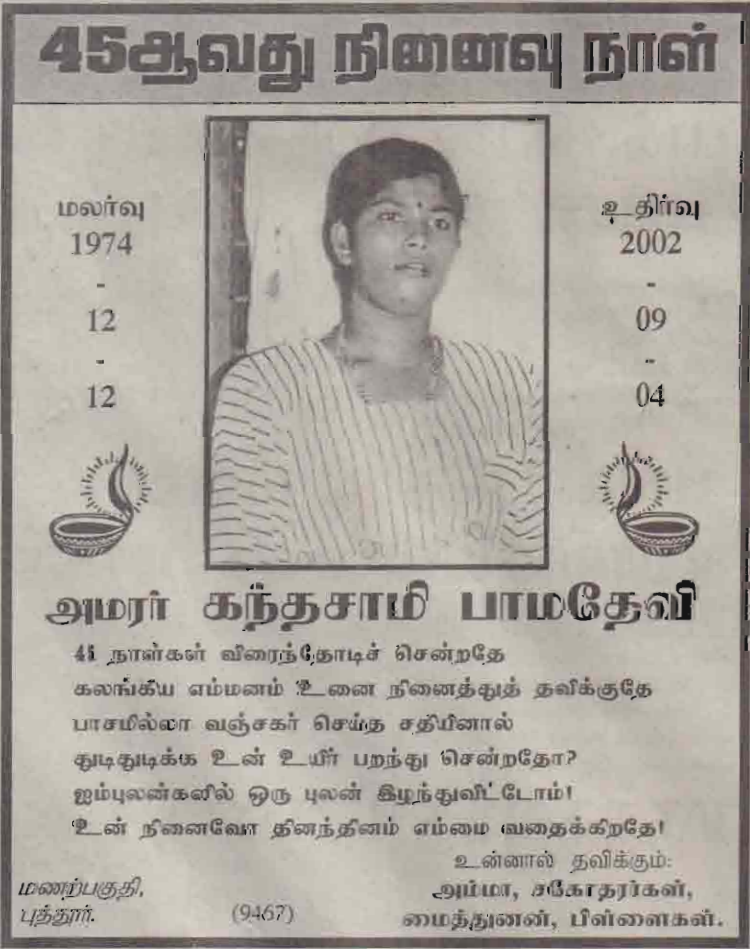 45ஆவது நினைவு நாள்
மலர்வு
1974
-
12
-
12
உதிர்வு
2002
-
09
-
04
அமரர் கந்தசாமி பாமதேவி
45 நாள்கள் விரைந்தோடிச் சென்றதே
கலங்கிய எம்மனம் உனை நினைத்துத் தவிக்குதே
பாசமில்லா வஞ்சகர் செய்த சதியினால்
துடிதுடிக்க உன் உயிர் பறந்து சென்றதோ?
ஐம்புலன்களில் ஒரு புலன் இழந்துவிட்டோம்!
உன் நினைவோ தினந்தினம் எம்மை வதைக்கிறதே!
உன்னால் தவிக்கும்:
அம்மா, சகோதரர்கள்,
மைத்துனன், பிள்ளைகள்.
மணற்பகுதி,
புத்தூர்.
(9467)